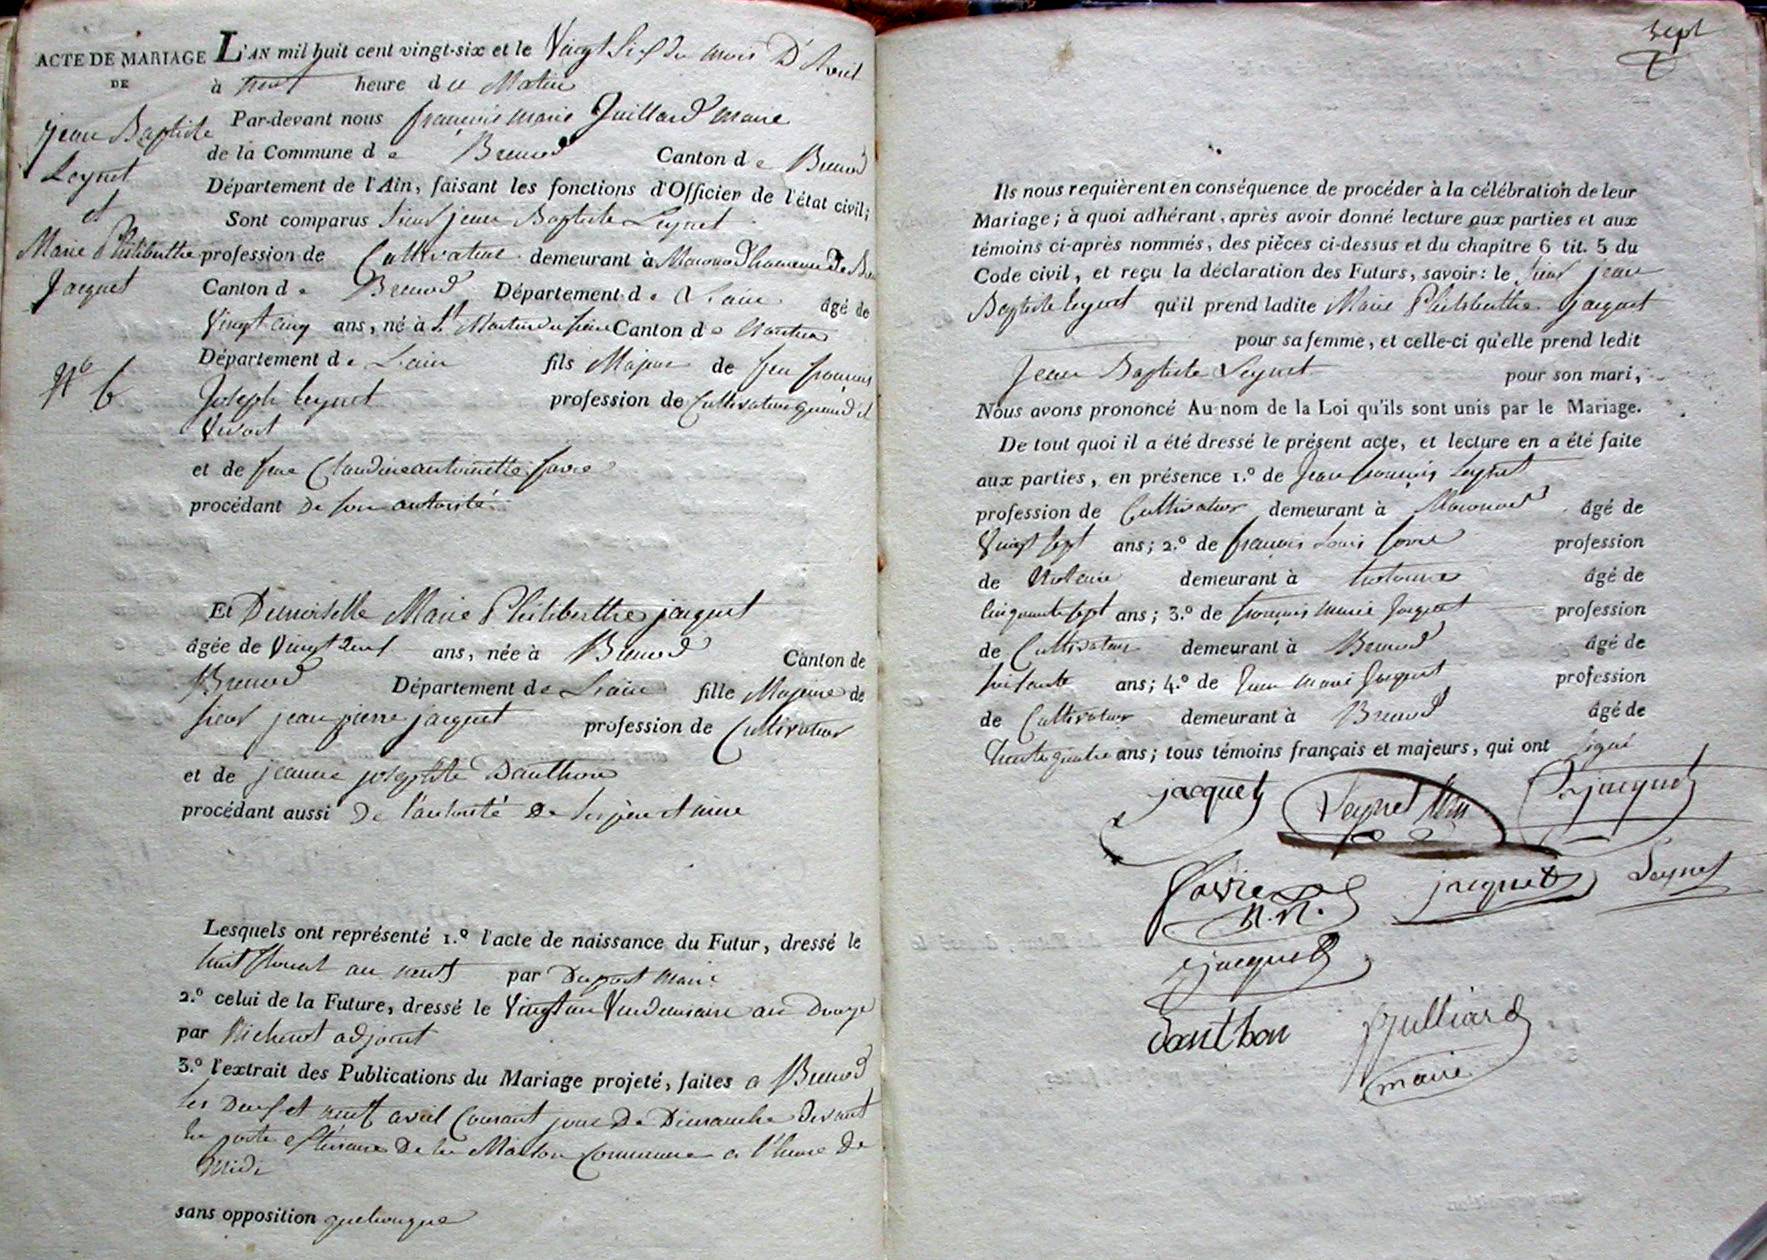 ACTE DE MARIAGE
DE
jean Baptiste
Leynet
et
Marie Philiberthe
Jacquet
N.o 6
L'AN mil huit cent vingt-six et le Vingt Six du mois D'Avril
à neuf heure du Matin
Par-devant nous françois marie Juillard maire
de la Commune de Brenod Canton de Brenod
Département de l'Ain, faisant les fonctions d'Officier de l'état civil;
Sont comparus Sieur jean Baptiste Leynet
profession de Cultivateur demeurant à hameau de
Canton de Brenod Département de L'ain âgé de
Vingt cinq ans, né à St Martin du frene Canton de Nantua
Département de L'ain fils Majeur de feu françois
Joseph Leynet profession de Cultivateur quand il
Vivoit
et de feue Claudine antoinette favre
procédant de son autorité
Et Demoiselle Marie Philiberthe jacquet
âgée de Vingt deux ans, née à Brenod Canton de
Brenod Département de L'ain fille Majeure de
Sieur jean pierre jacquet profession de Cultivateur
et de jeanne josephte Danthon
procédant aussi de l'autorité de ses père et mère
Lesquels ont représenté 1.º l'acte de naissance du Futur, dressé le
huit floreal an neuf par Dupont maire
2.º celui de la Future, dressé le Vingt un Vendemiaire an Douze
par adjoint
3.º l'extrait des Publications du Mariage projeté, faites a Brenod
les Deux et neuf avril Courant jour de Dimanche devant
la porte exterieure de la Maison Commune a l'heure de
Midi
sans opposition quelconque
sept
Ils nous requièrent en conséquence de procéder à la célébration de leur
Mariage; à quoi adhérant, après avoir donné lecture aux parties et aux
témoins ci-après nommés, des pièces ci-dessus et du chapitre 6 tit. 5 du
Code civil, et reçu la déclaration des Futurs, savoir: le Sieur jean
Baptiste Leynet qu'il prend ladite Marie Philiberthe jacquet
pour sa femme, et celle-ci qu'elle prend ledit
Jean Baptiste Leynet pour son mari,
Nous avons prononcé Au nom de la Loi qu'ils sont unis par le Mariage.
De tout quoi il a été dressé le présent acte, et lecture en a été faite
aux parties, en présence 1.º de Jean françois Leynet
profession de Cultivateur demeurant à âgé de
Vingt sept ans; 2.º de françois Louis favre profession
de Notaire demeurant à âgé de
Cinquante sept ans; 3.º de françois marie Jacquet profession
de Cultivateur demeurant à Brenod âgé de
ans; 4.º de Jean marie Jacquet profession
de Cultivateur demeurant à Brenod âgé de
trente quatre ans; tous témoins français et majeurs, qui ont signé
jacquet Leynet jacquet
favre jacquet Leynet
N. R.
jacquet
Danthon Julliard
maire